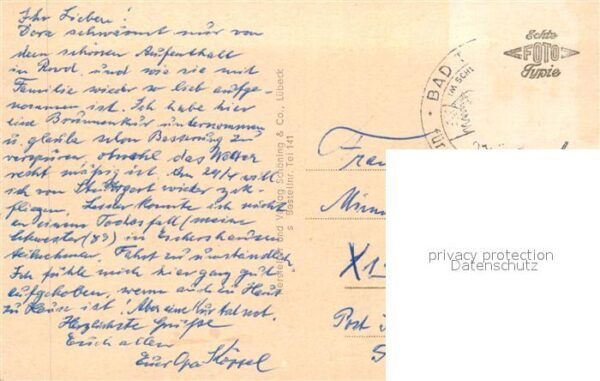 Ihr Lieben!
Dora schwärmt nur von
dem schönen Aufenthalt
in Rovd. und wie sie mit
Familie wieder so lieb aufge-
nommen ist. Ich habe hier
eine Brunnenkur unternommen
u. glaube schon Besserung zu
verspüren, obwohl das Wetter
recht mäßig ist. Am 24/4 will
ich von Stuttgart wieder zurück-
fliegen. Leider konnte ich nicht
an einem Todesfall (meine
Schwester (89) in Eschershausen
teilnehmen. Fahrt zu umständlich
Ich fühle mich hier ganz gut
aufgehoben, wenn auch zu Haus
zu Hause ist! Aber eine Kur tat not.
Herzlichste Grüße
Euch allen
Euer Opa
Schöning & Co., Lübeck
Bestellnr. Tei 141
Echte
FOTO
Typie
BAD T
IM SCH
Frau
X1
Post
privacy protection
Datenschutz